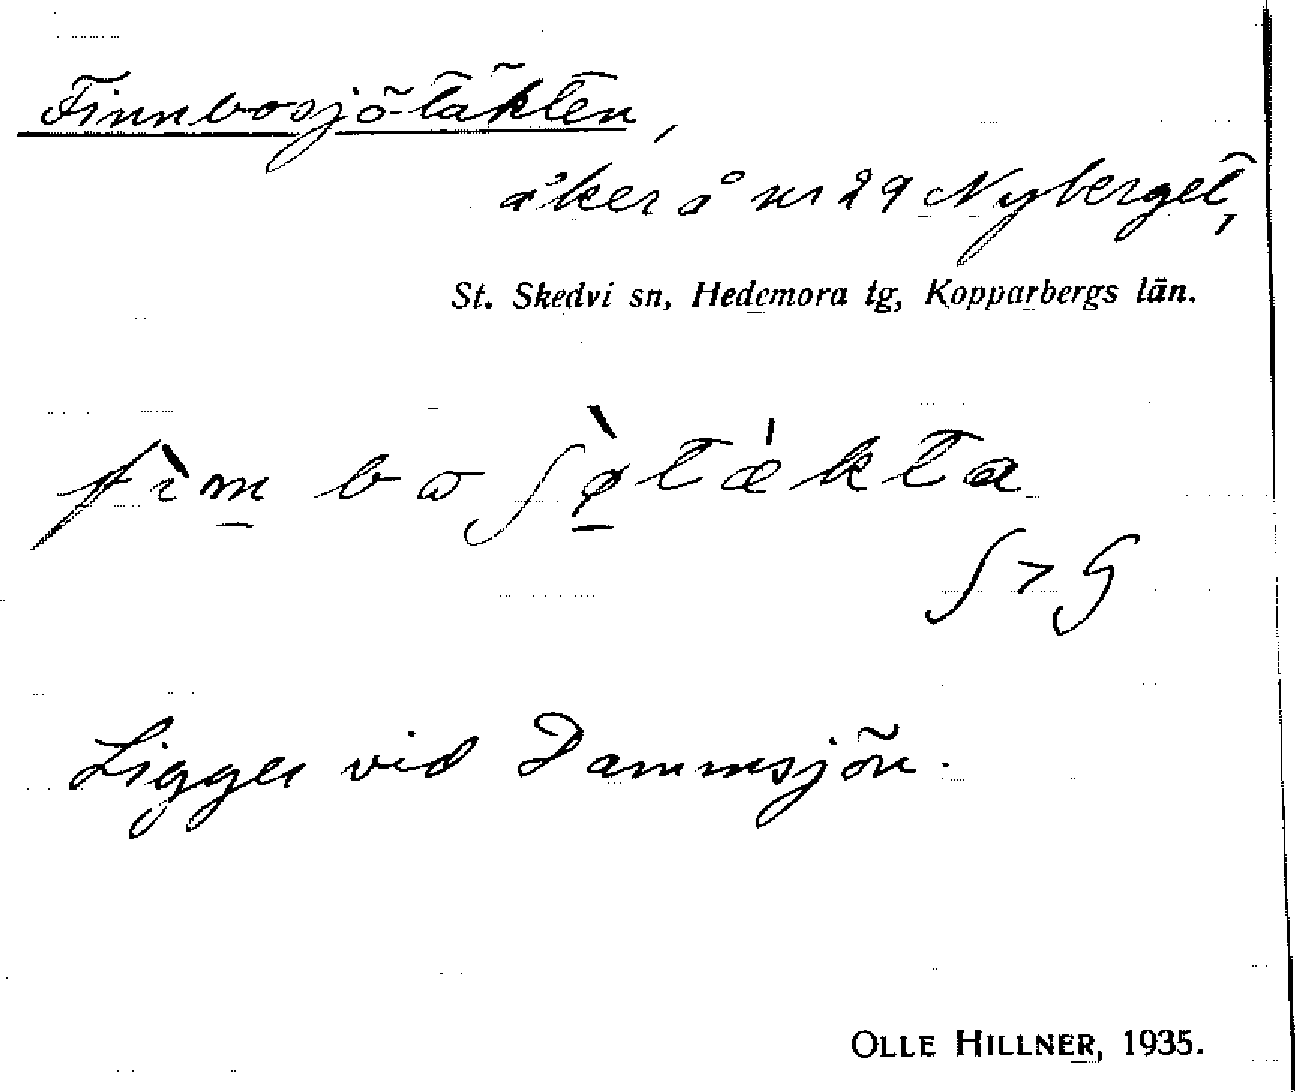 Finnbosjötäkten,
åker å nr 29 Nyberget,
St. Skedvi sn, Hedemora tg, Kopparbergs län.
fìm̲ bo ʃø̲̀tǽkta
ʃ > ʂ
Ligger vid Dammsjön.
OLLE HILLNER, 1935.